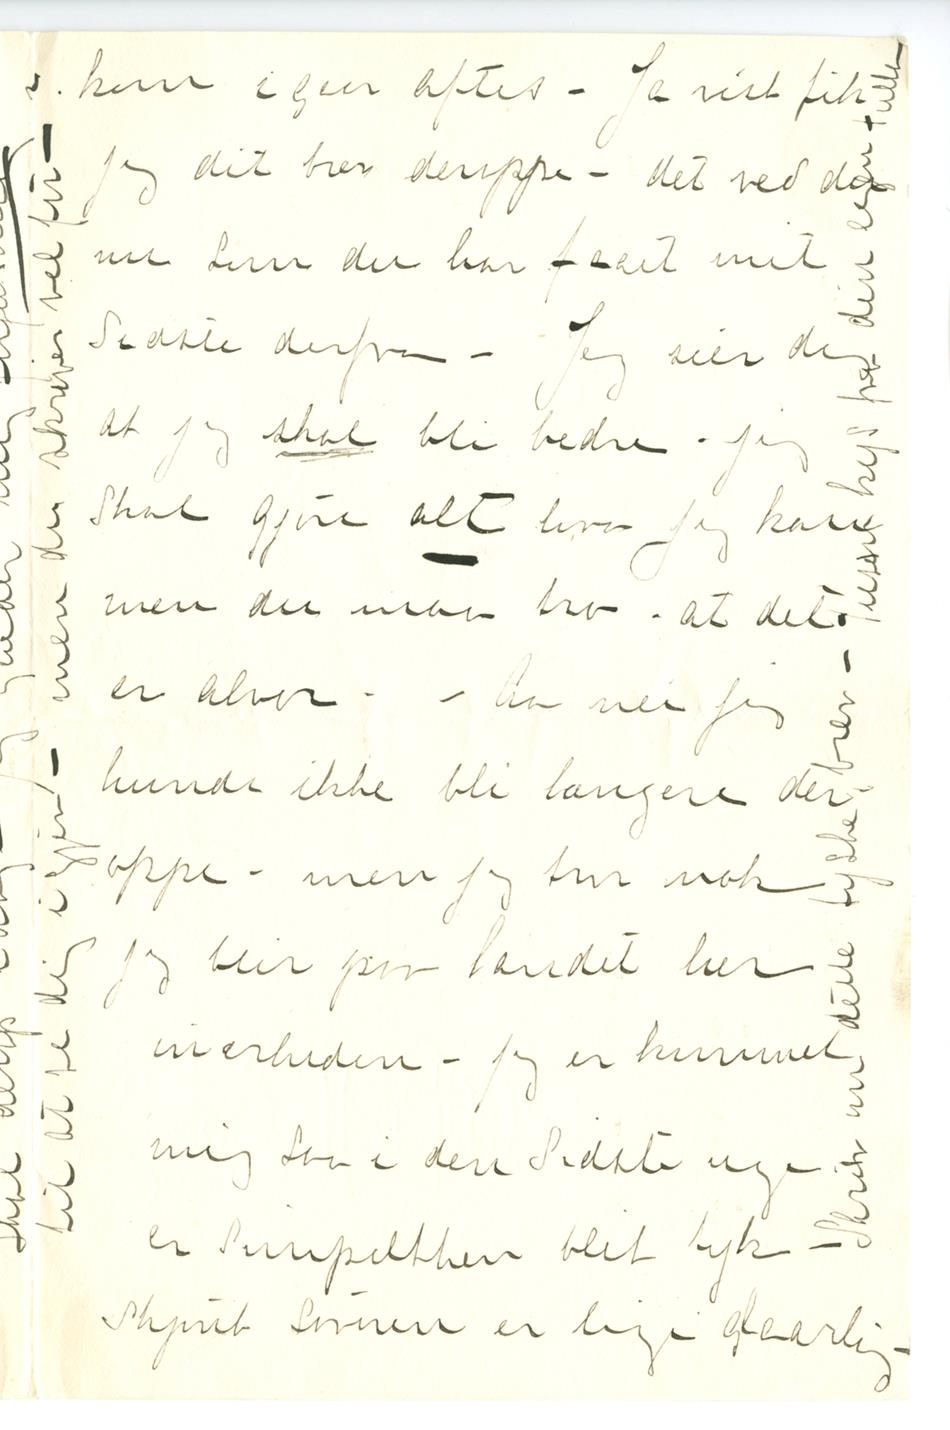 kom igaar aftes – Ja vist fik
jeg dit brev deroppe – det ved du
nu som du har faaet mit
Sidste derfra – Jeg sier dig
at jeg skal bli bedre – jeg
Skal gjøre alt hva jeg kan
men du maa tro – at det
er alvor – – Aa nei jeg
kunde ikke bli længere der
oppe – men jeg tror nok
jeg blir paa landet her
i nærheden – jeg er kommet
mig saa i den Sidste uge
er Simpelthen blit tyk –
Skjønt Søvnen er lige daarlig –
Skriv nu dette tykke brev – Tusen kys fra din egen tulla
til at se dig igjen! – men du skriver vel før –
Skal jeg